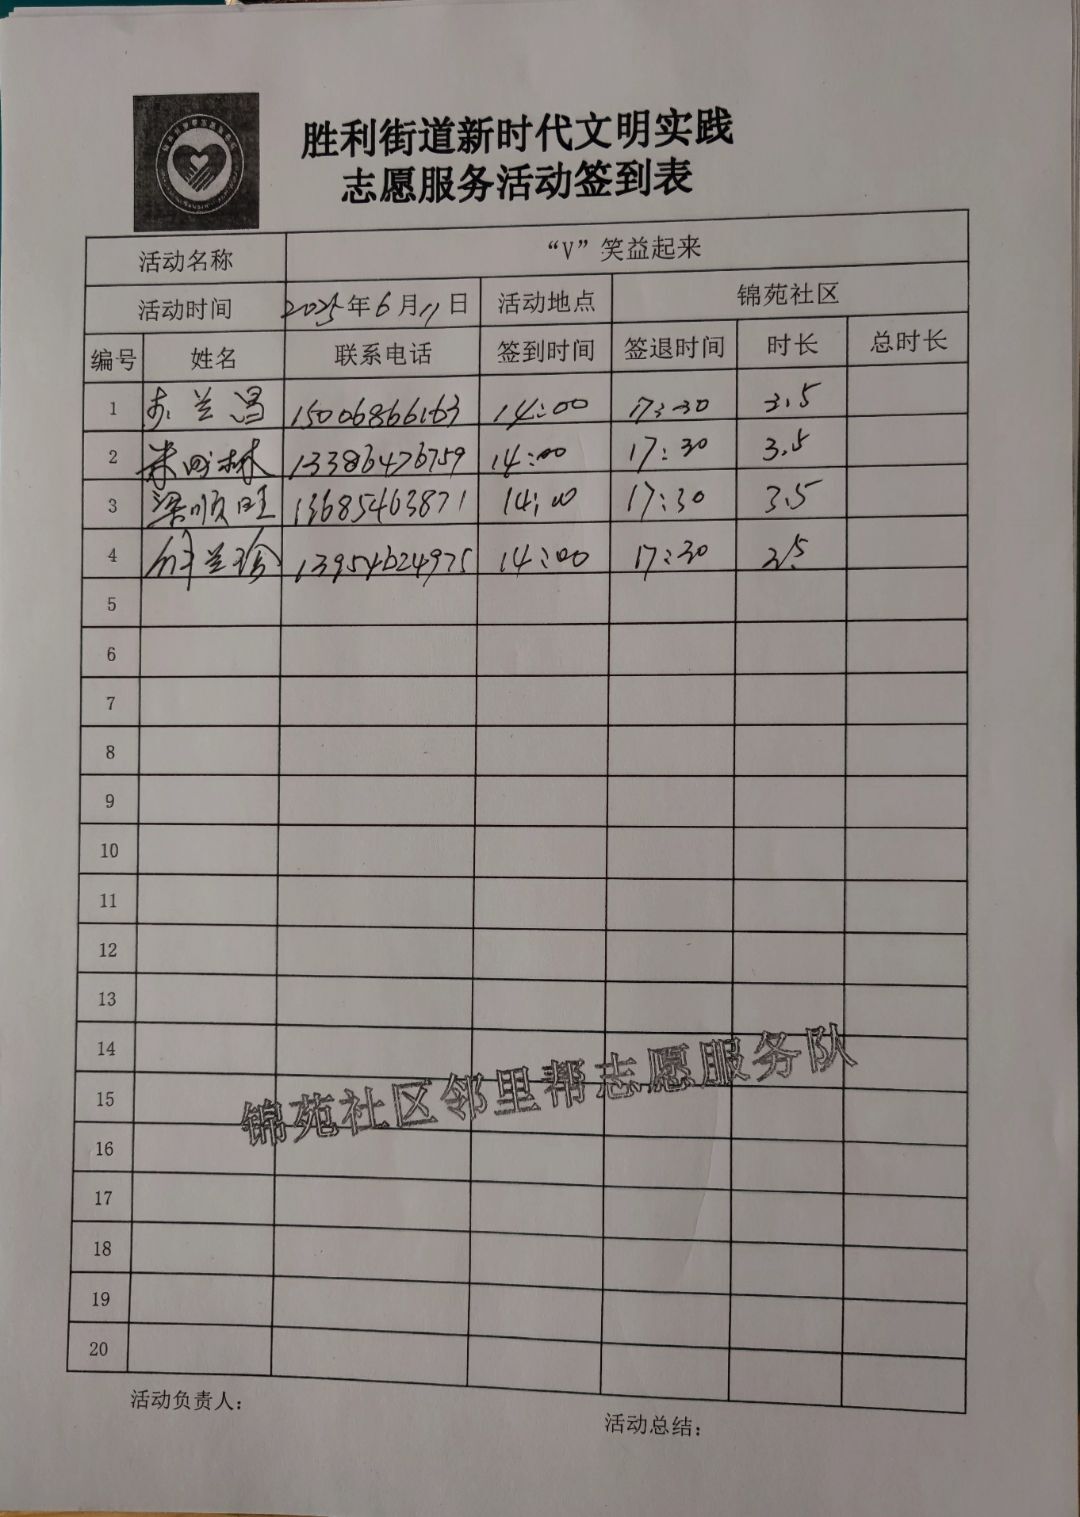 胜利街道新时代文明实践
志愿服务活动签到表
活动名称 “V”笑益起来
活动时间 2025年6月11日 活动地点 锦苑社区
编号 姓名 联系电话 签到时间 签退时间 时长 总时长
1 兰昌 15006866163 14:00 17:30 3.5
2 林 13386476759 14:00 17:30 3.5
3 梁顺旺 13685463871 14:00 17:30 3.5
4 兰珍 13954624975 14:00 17:30 3.5
5
6
7
8
9
10
11
12
13
14
15
16
17
18
19
20
锦苑社区邻里帮志愿服务队
活动负责人：
活动总结：